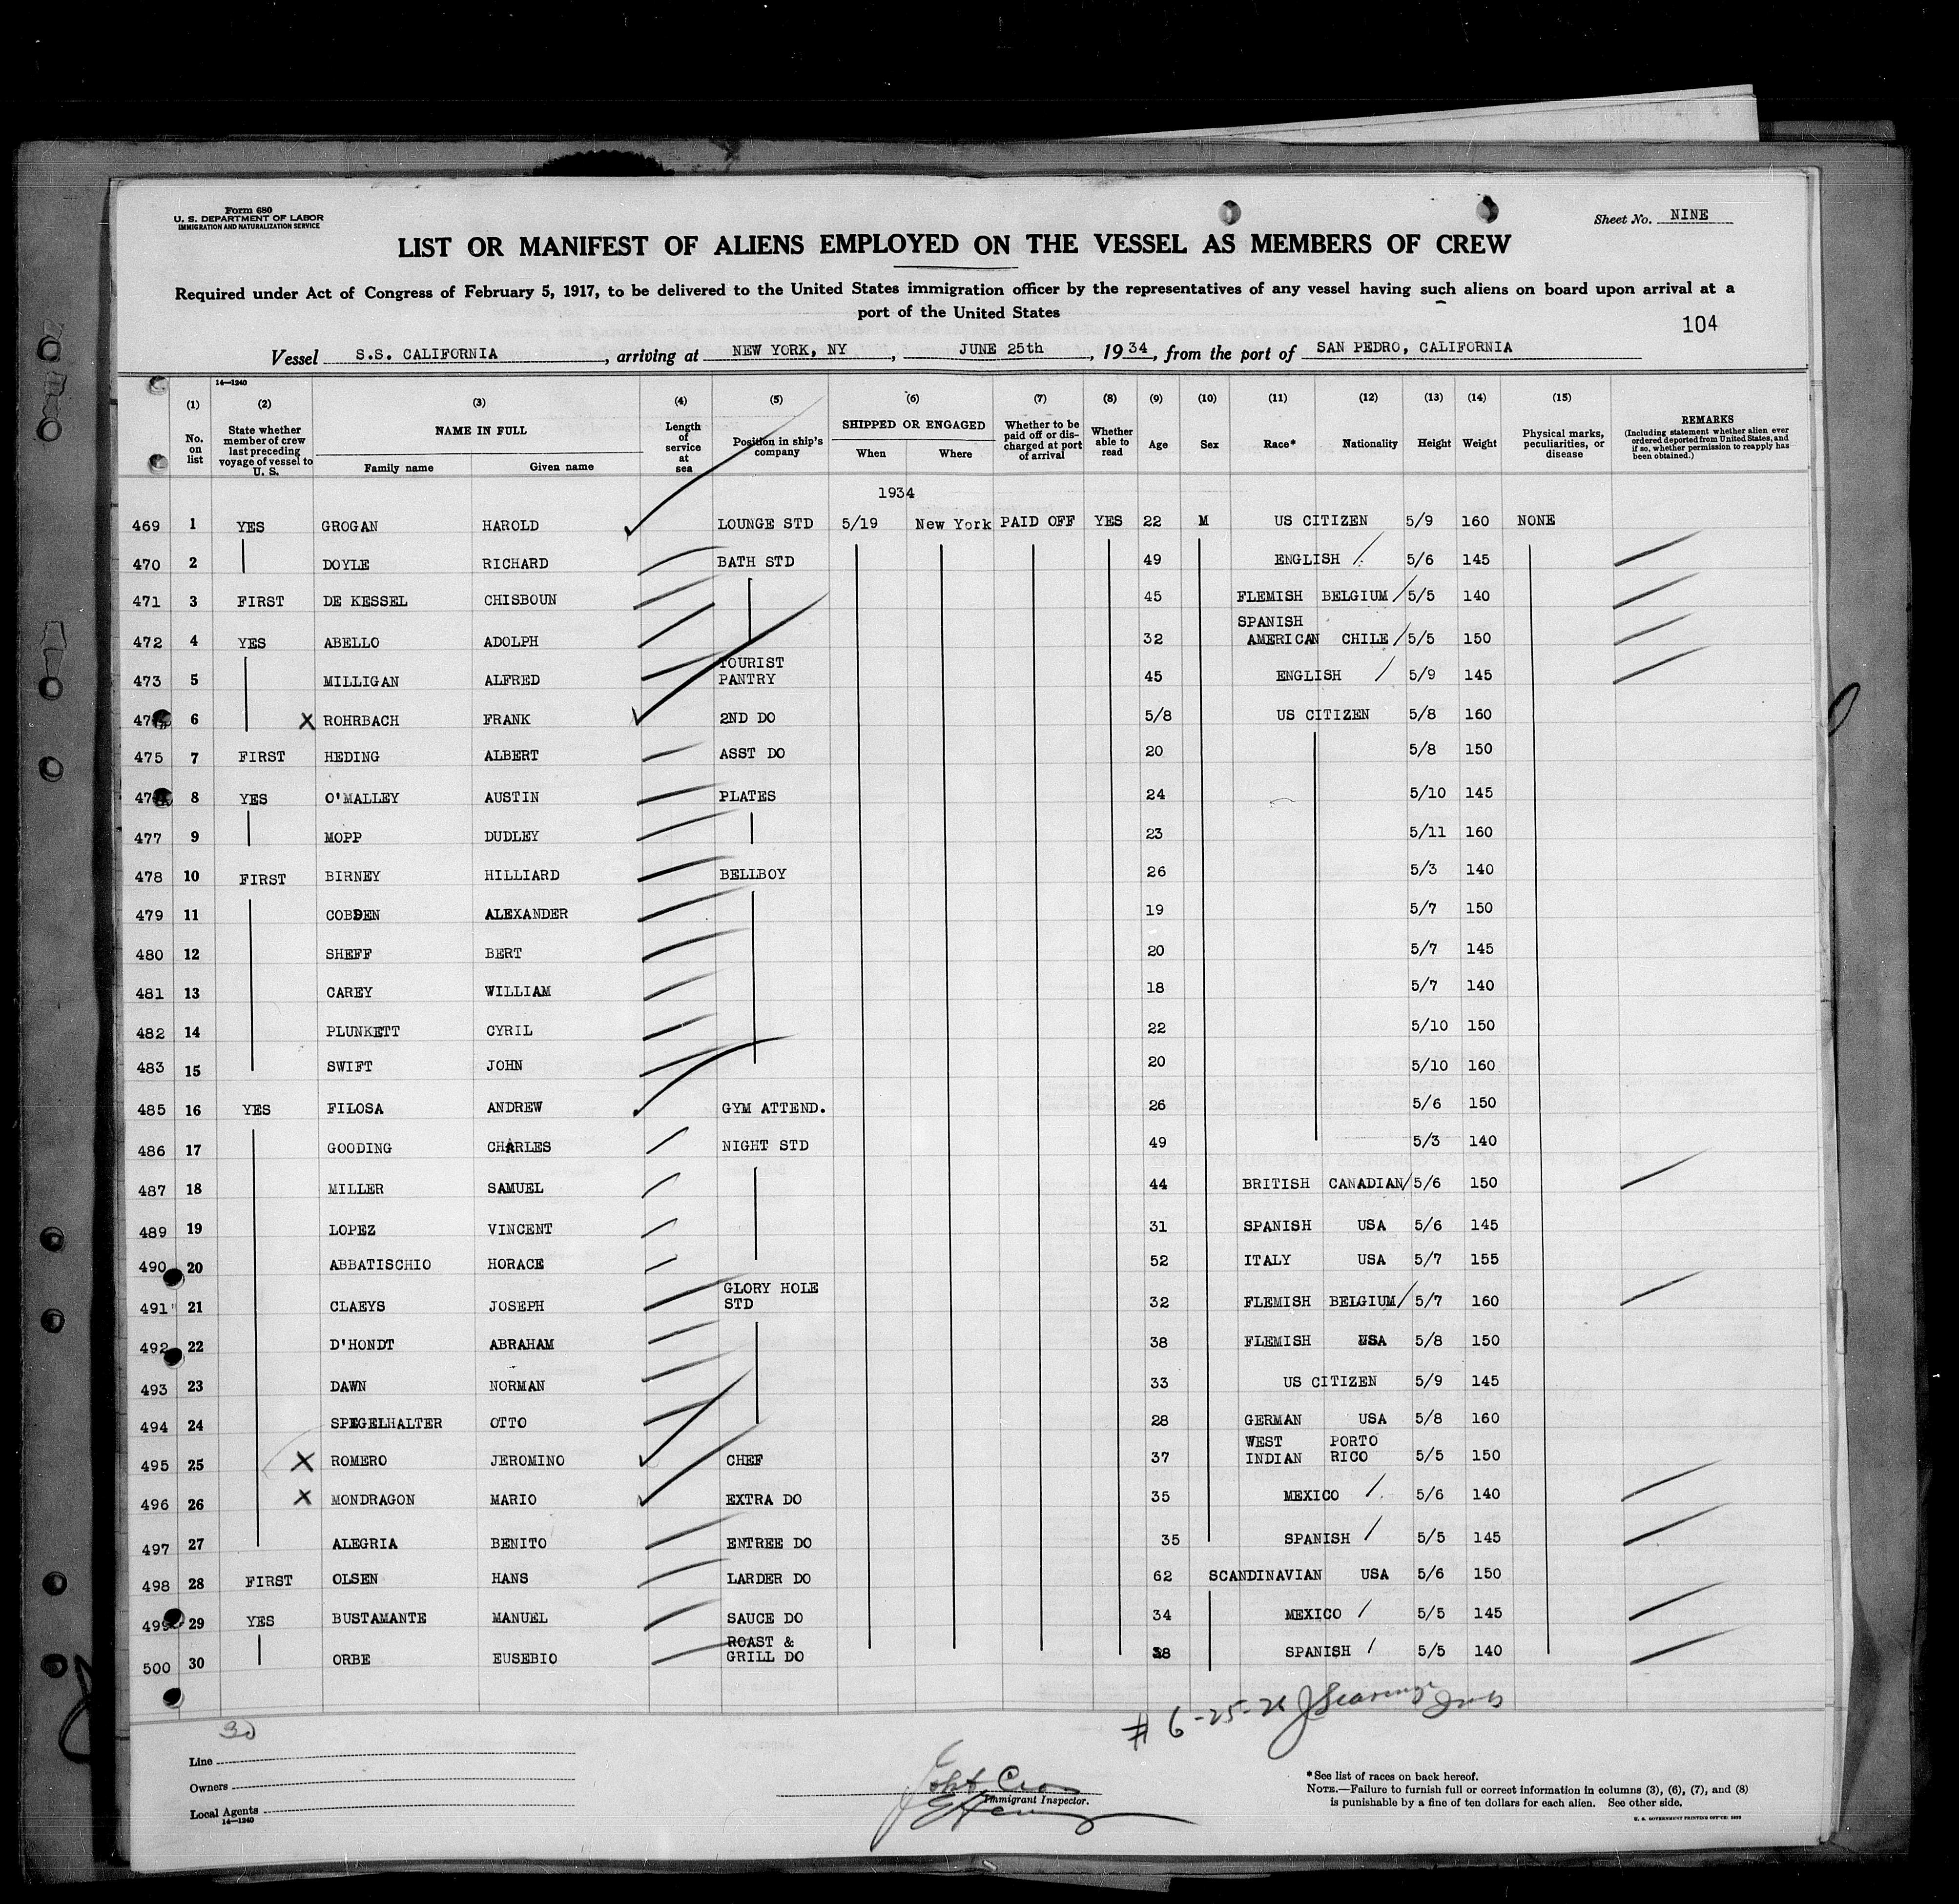 Form 680
U. S. DEPARTMENT OF LABOR
IMMIGRATION AND NATURALIZATION SERVICE
Sheet No. NINE
LIST OR MANIFEST OF ALIENS EMPLOYED ON THE VESSEL AS MEMBERS OF CREW
Required under Act of Congress of February 5, 1917, to be delivered to the United States immigration officer by the representatives of any vessel having such aliens on board upon arrival at a
port of the United States
104
Vessel S.S. CALIFORNIA, arriving at NEW YORK, NY, JUNE 25th, 1934, from the port of SAN PEDRO, CALIFORNIA
14—1240
(1) (2) (3) (4) (5) (6) (7) (8) (9) (10) (11) (12) (13) (14) (15)
No. on list State whether member of crew last preceding voyage of vessel to U. S. NAME IN FULL Family name Given name Length of service at sea Position in ship's company SHIPPED OR ENGAGED When Where Whether to be paid off or discharged at port of arrival Whether able to read Age Sex Race* Nationality Height Weight Physical marks, peculiarities, or disease REMARKS (Including statement whether alien ever ordered deported from United States, and if so, whether permission to reapply has been obtained.)
1934
469 1 YES GROGAN HAROLD LOUNGE STD 5/19 New York PAID OFF YES 22 M US CITIZEN 5/9 160 NONE
470 2 DOYLE RICHARD BATH STD 49 ENGLISH 5/6 145
471 3 FIRST DE KESSEL CHISBOUN 45 FLEMISH BELGIUM 5/5 140
472 4 YES ABELLO ADOLPH 32 SPANISH AMERICAN CHILE 5/5 150
473 5 MILLIGAN ALFRED TOURIST PANTRY 45 ENGLISH 5/9 145
47 6 X ROHRBACH FRANK 2ND DO 5/8 US CITIZEN 5/8 160
475 7 FIRST HEDING ALBERT ASST DO 20 5/8 150
47 8 YES O'MALLEY AUSTIN PLATES 24 5/10 145
477 9 MOPP DUDLEY 23 5/11 160
478 10 FIRST BIRNEY HILLIARD BELLBOY 26 5/3 140
479 11 COBDEN ALEXANDER 19 5/7 150
480 12 SHEFF BERT 20 5/7 145
481 13 CAREY WILLIAM 18 5/7 140
482 14 PLUNKETT CYRIL 22 5/10 150
483 15 SWIFT JOHN 20 5/10 160
485 16 YES FILOSA ANDREW GYM ATTEND. 26 5/6 150
486 17 GOODING CHARLES NIGHT STD 49 5/3 140
487 18 MILLER SAMUEL 44 BRITISH CANADIAN 5/6 150
489 19 LOPEZ VINCENT 31 SPANISH USA 5/6 145
490 20 ABBATISCHIO HORACE 52 ITALY USA 5/7 155
491 21 CLAEYS JOSEPH GLORY HOLE STD 32 FLEMISH BELGIUM 5/7 160
492 22 D'HONDT ABRAHAM 38 FLEMISH USA 5/8 150
493 23 DAWN NORMAN 33 US CITIZEN 5/9 145
494 24 SPEGELHALTER OTTO 28 GERMAN USA 5/8 160
495 25 X ROMERO JEROMINO CHEF 37 WEST INDIAN PORTO RICO 5/5 150
496 26 X MONDRAGON MARIO EXTRA DO 35 MEXICO 5/6 140
497 27 ALEGRIA BENITO ENTREE DO 35 SPANISH 5/5 145
498 28 FIRST OLSEN HANS LARDER DO 62 SCANDINAVIAN USA 5/6 150
499 29 YES BUSTAMANTE MANUEL SAUCE DO 34 MEXICO 5/5 145
500 30 ORBE EUSEBIO ROAST & GRILL DO 38 SPANISH 5/5 140
30
Line
Owners
Local Agents
14—1240
Immigrant Inspector.
*See list of races on back hereof.
NOTE.—Failure to furnish full or correct information in columns (3), (6), (7), and (8)
is punishable by a fine of ten dollars for each alien. See other side.